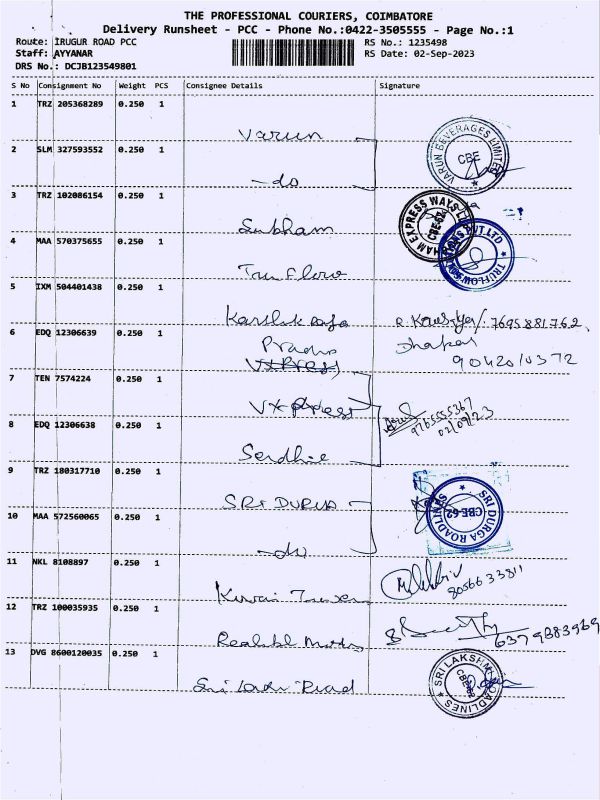 THE PROFESSIONAL COURIERS, COIMBATORE
Delivery Runsheet - PCC - Phone No.:0422-3505555 - Page No.:1
Route: IRUGUR ROAD PCC
RS No.: 1235498
Staff: AYYANAR
RS Date: 02-Sep-2023
DRS No.: DCJB123549801
S No Consignment No Weight PCS Consignee Details Signature
1 TRZ 205368289 0.250 1
Varun
VARUN BEVERAGES LIMITED CBE
2 SLM 327593552 0.250 1
-do
3 TRZ 102086154 0.250 1
Subham
EXPRESS WAYS CBE-62
4 MAA 570375655 0.250 1
Truflow
TRUFLOW PVT LTD
5 IXM 504401438 0.250 1
7695881762
6 EDQ 12306639 0.250 1
Dhakar
9042010372
7 TEN 7574224 0.250 1
Vxpress
9765555367
02/09/23
8 EDQ 12306638 0.250 1
9 TRZ 180317710 0.250 1
SRI DURGA
SRI DURGA ROADLINES CBE-62
10 MAA 572560065 0.250 1
-do
11 NKL 8108897 0.250 1
8056633811
12 TRZ 100035935 0.250 1
6379883969
13 DVG 8600120035 0.250 1
SRI LAKSHMI ROADLINES CBE-62